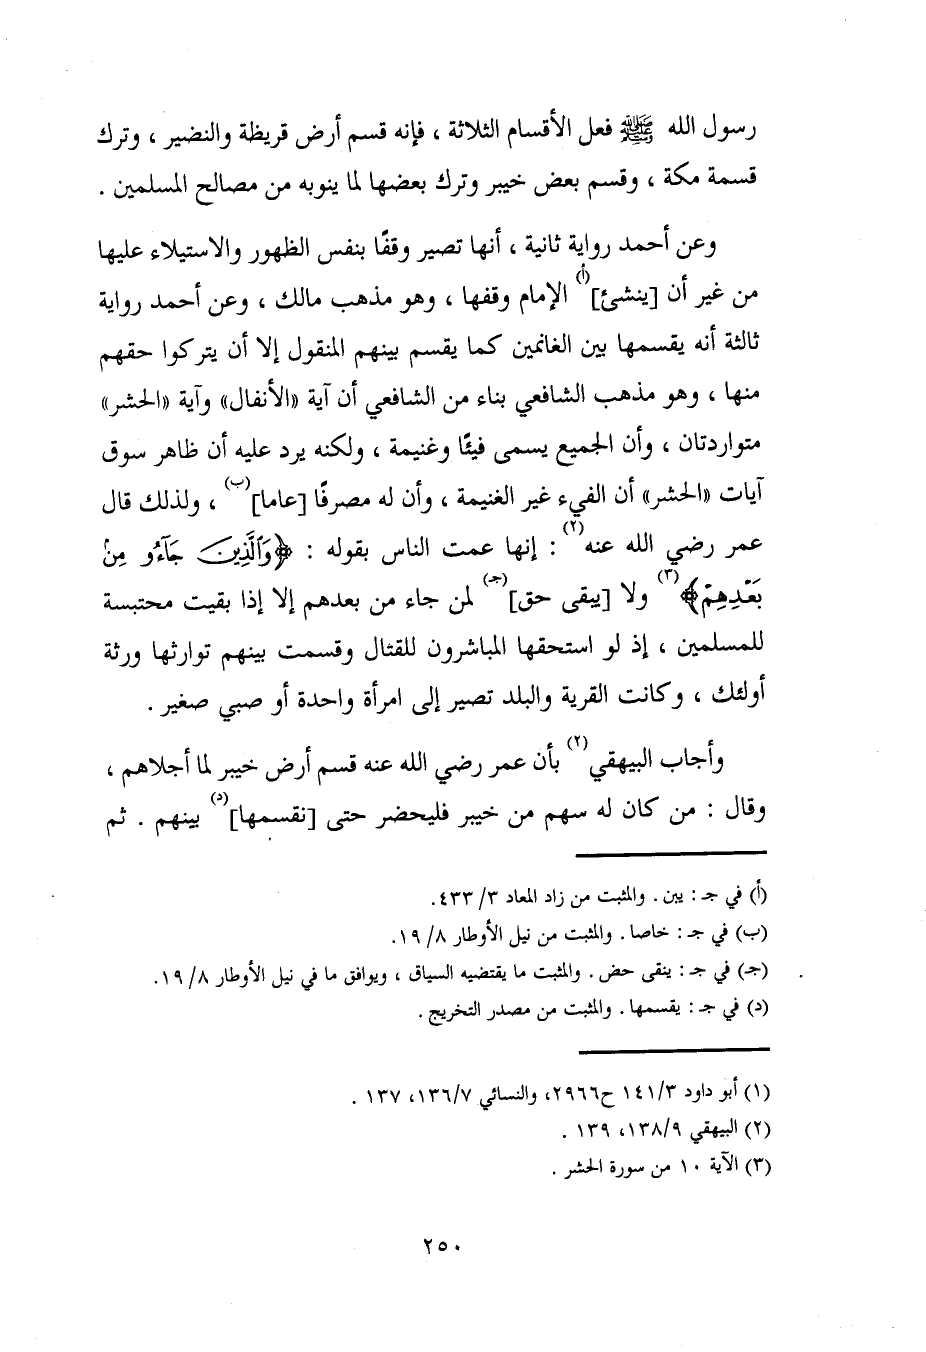 رسول الله ﷺ فعل الأقسام الثلاثة ، فإنه قسم أرض قريظة والنضير ، وترك
قسمة مكة ، وقسم بعض خيبر وترك بعضها لما ينوبه من مصالح المسلمين .
وعن أحمد رواية ثانية ، أنها تصير وقفًا بنفس الظهور والاستيلاء عليها
من غير أن [ينشئ](أ) الإمام وقفها ، وهو مذهب مالك ، وعن أحمد رواية
ثالثة أنه يقسمها بين الغانمين كما يقسم بينهم المنقول إلا أن يتركوا حقهم
منها ، وهو مذهب الشافعي بناء من الشافعي أن آية «الأنفال» وآية «الحشر»
متواردتان ، وأن الجميع يسمى فيئًا وغنيمة ، ولكنه يرد عليه أن ظاهر سوق
آيات «الحشر» أن الفيء غير الغنيمة ، وأن له مصرفًا [عاما](ب) ، ولذلك قال
عمر رضي الله عنه(٢) : إنها عمت الناس بقوله : ﴿وَٱلَّذِينَ جَآءُو مِنۢ
بَعْدِهِمْ﴾(٣) ولا [يبقى حق](جـ) لمن جاء من بعدهم إلا إذا بقيت محتبسة
للمسلمين ، إذ لو استحقها المباشرون للقتال وقسمت بينهم توارثها ورثة
أولئك ، وكانت القرية والبلد تصير إلى امرأة واحدة أو صبي صغير .
وأجاب البيهقي(٢) بأن عمر رضي الله عنه قسم أرض خيبر لما أجلاهم ،
وقال : من كان له سهم من خيبر فليحضر حتى [نقسمها](د) بينهم . ثم
(أ) في جـ : يبن . والمثبت من زاد المعاد ٣/ ٤٣٣.
(ب) في جـ : خاصا . والمثبت من نيل الأوطار ٨/ ١٩.
(جـ) في جـ : ينقى حض . والمثبت ما يقتضيه السياق ، ويوافق ما في نيل الأوطار ٨/ ١٩.
(د) في جـ : يقسمها . والمثبت من مصدر التخريج .
(١) أبو داود ٣/ ١٤١ ح٢٩٦٦، والنسائي ٧/ ١٣٦، ١٣٧ .
(٢) البيهقي ٩/ ١٣٨، ١٣٩ .
(٣) الآية ١٠ من سورة الحشر .
٢٥٠